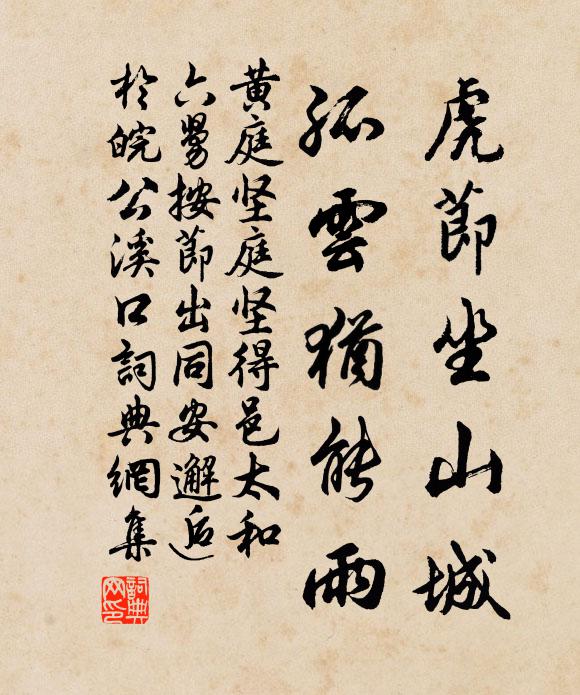 虎節坐山城
孤雲猶能雨
黃庭坚庭坚得邑太和
六舅按節出同安邂逅
於皖公溪口詞典網集
詞典网印